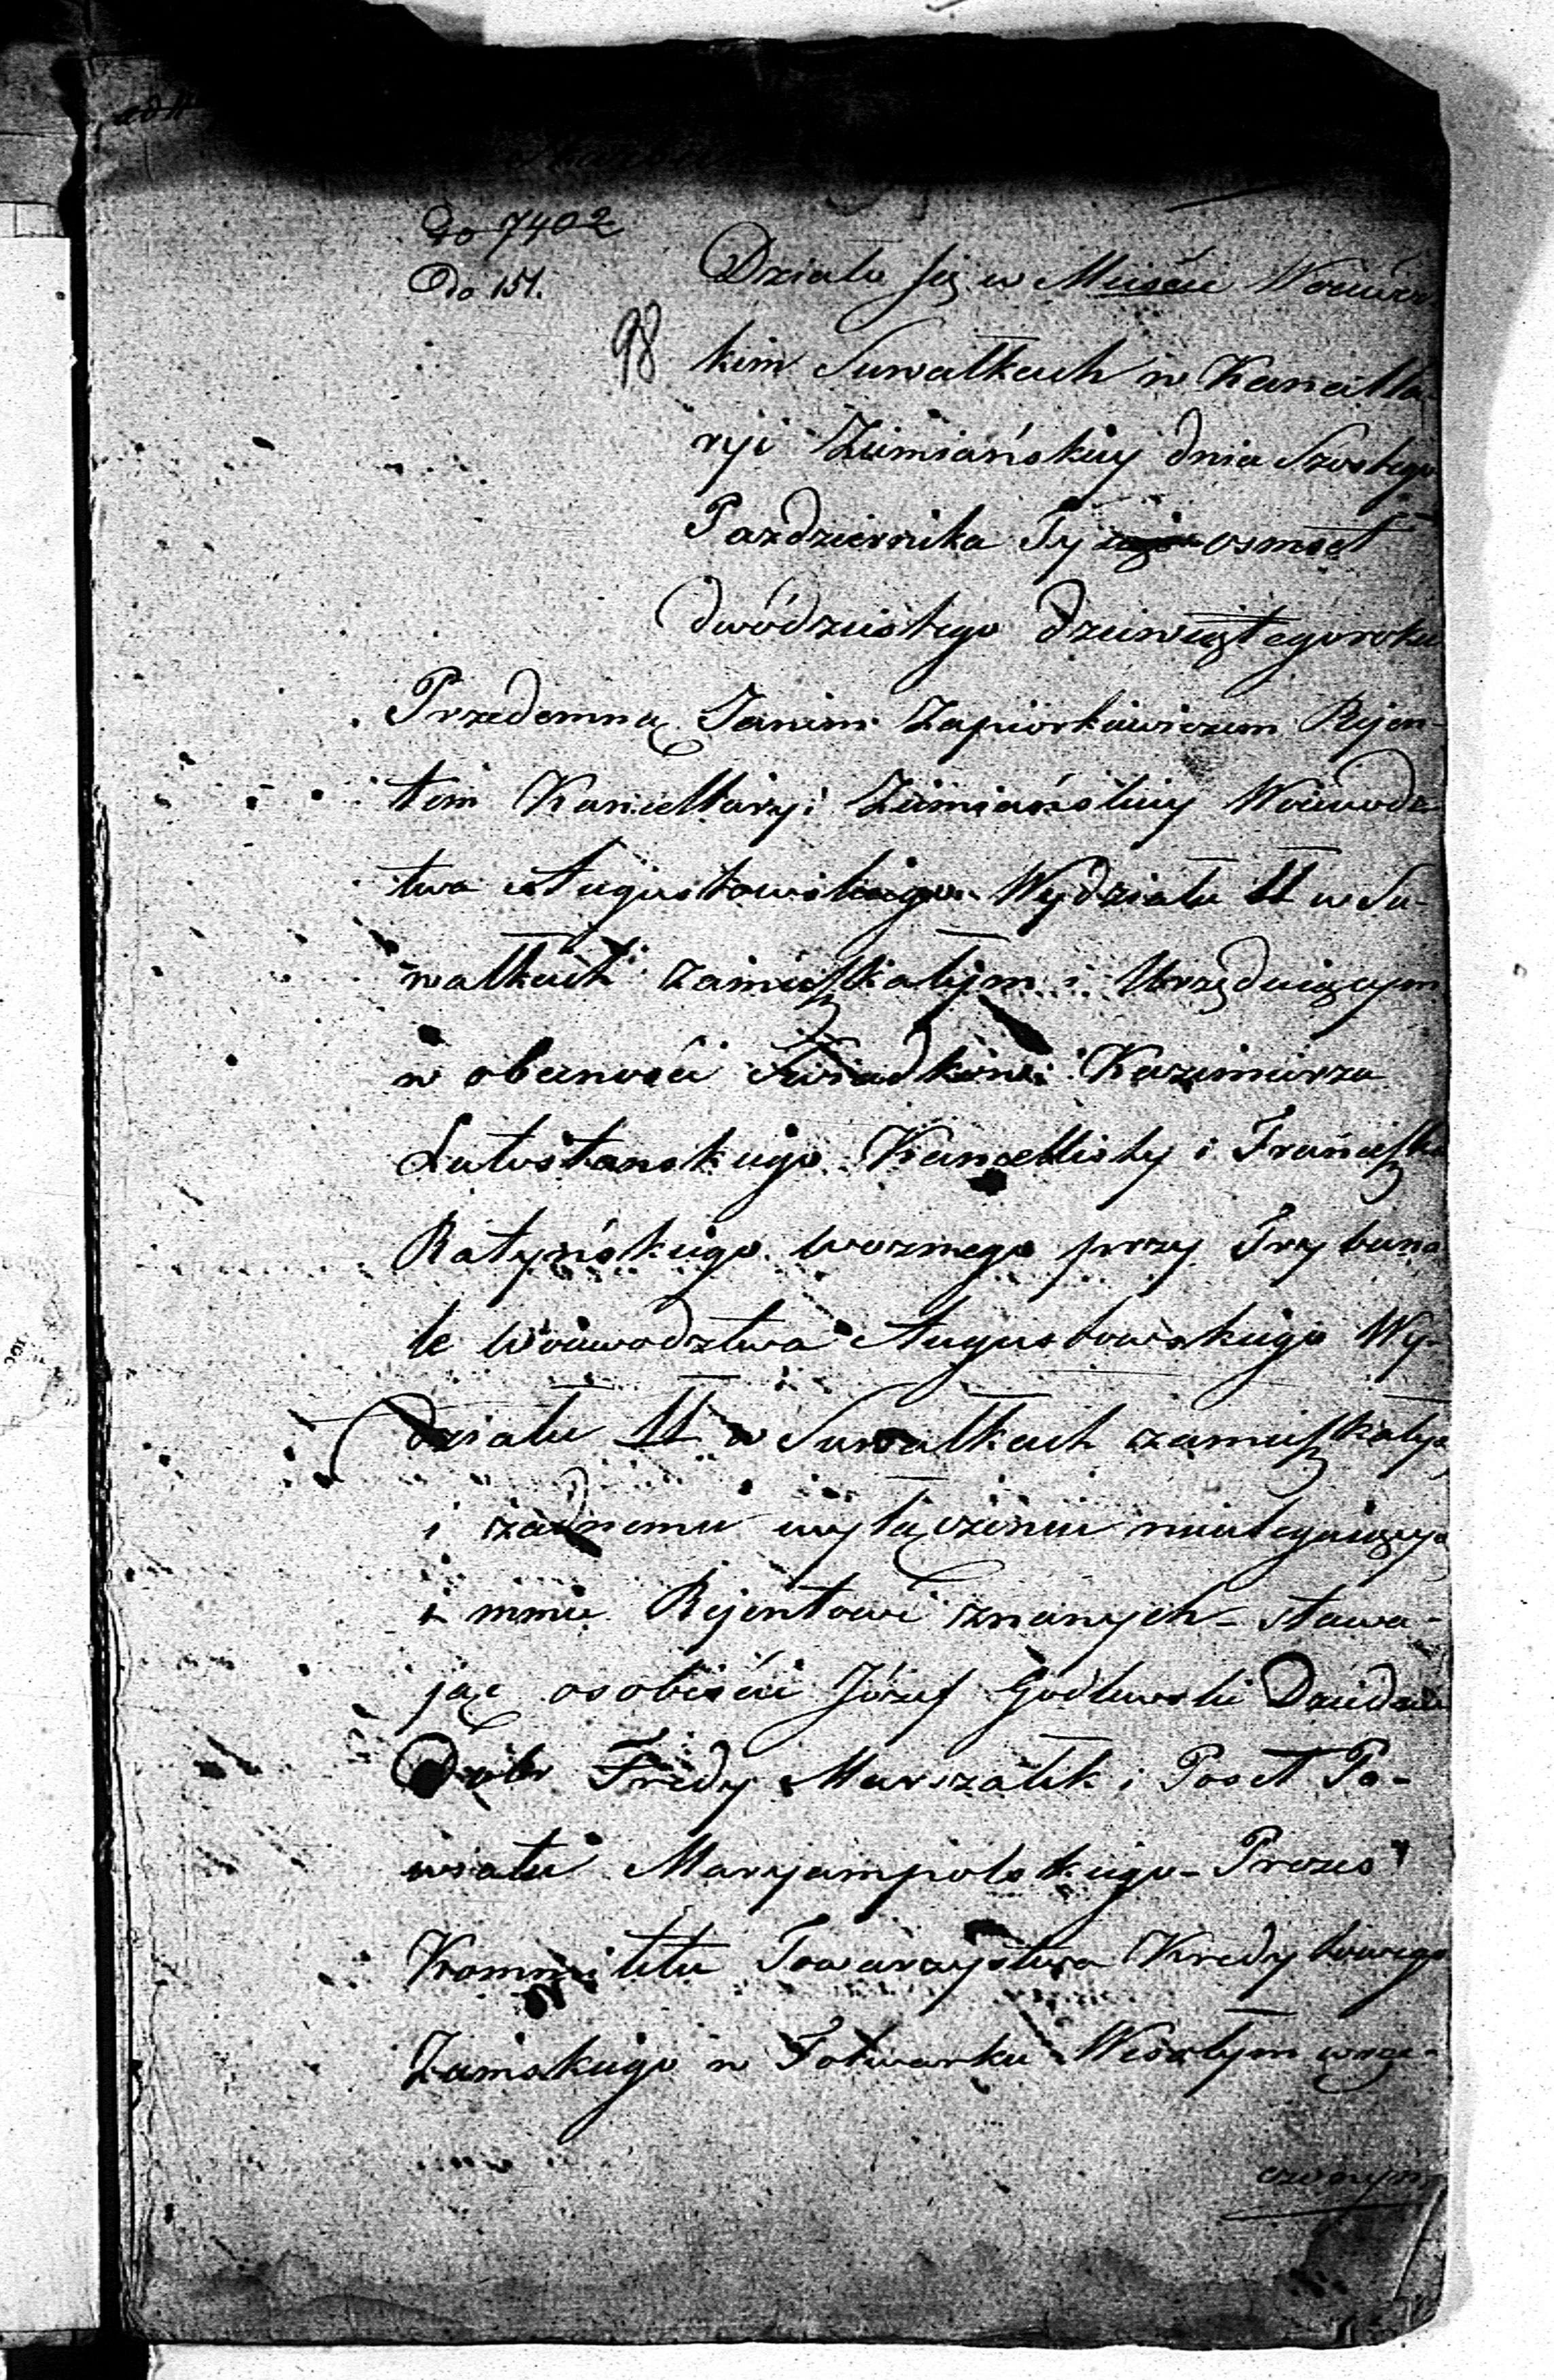 Do 7402
Do 151.
98
Działo się w Mieście Woiewódz
kim Suwałkach w Kancella-
ryi Ziemiańskiey dnia Szostego
Pazdziernika Tysiąc osmset
dwódziestego dziewiątego roku
Przedemną Janem Zapiórkiewiczem Rejen-
tem Kancellaryi Ziemiańskiey Woiewodz-
twa Augustowskiego Wydziału II w Su-
wałkach zamieszkałym i Urzęduiącym
w obecności Swiadków Kazimierza
Lutostanskiego Kancellisty i Franciszka
Ratyńskiego woznego przy Trybuna
le Woiewodztwa Augustowskiego Wy-
działu II w Suwałkach zamieszkałych
i żadnemu wyłączeniu nieulegaiących
i mnie Rejentowi znanych – stawa-
jąc osobiście Józef Godlewski Dziedzic
Dobr Fredy Marszałek i Poseł Po-
wiatu Maryampolskiego – Prezes
Kommitetu Towarzystwa Kredytowego
Ziemskiego w Folwarku Wesołym wrze-
czonym